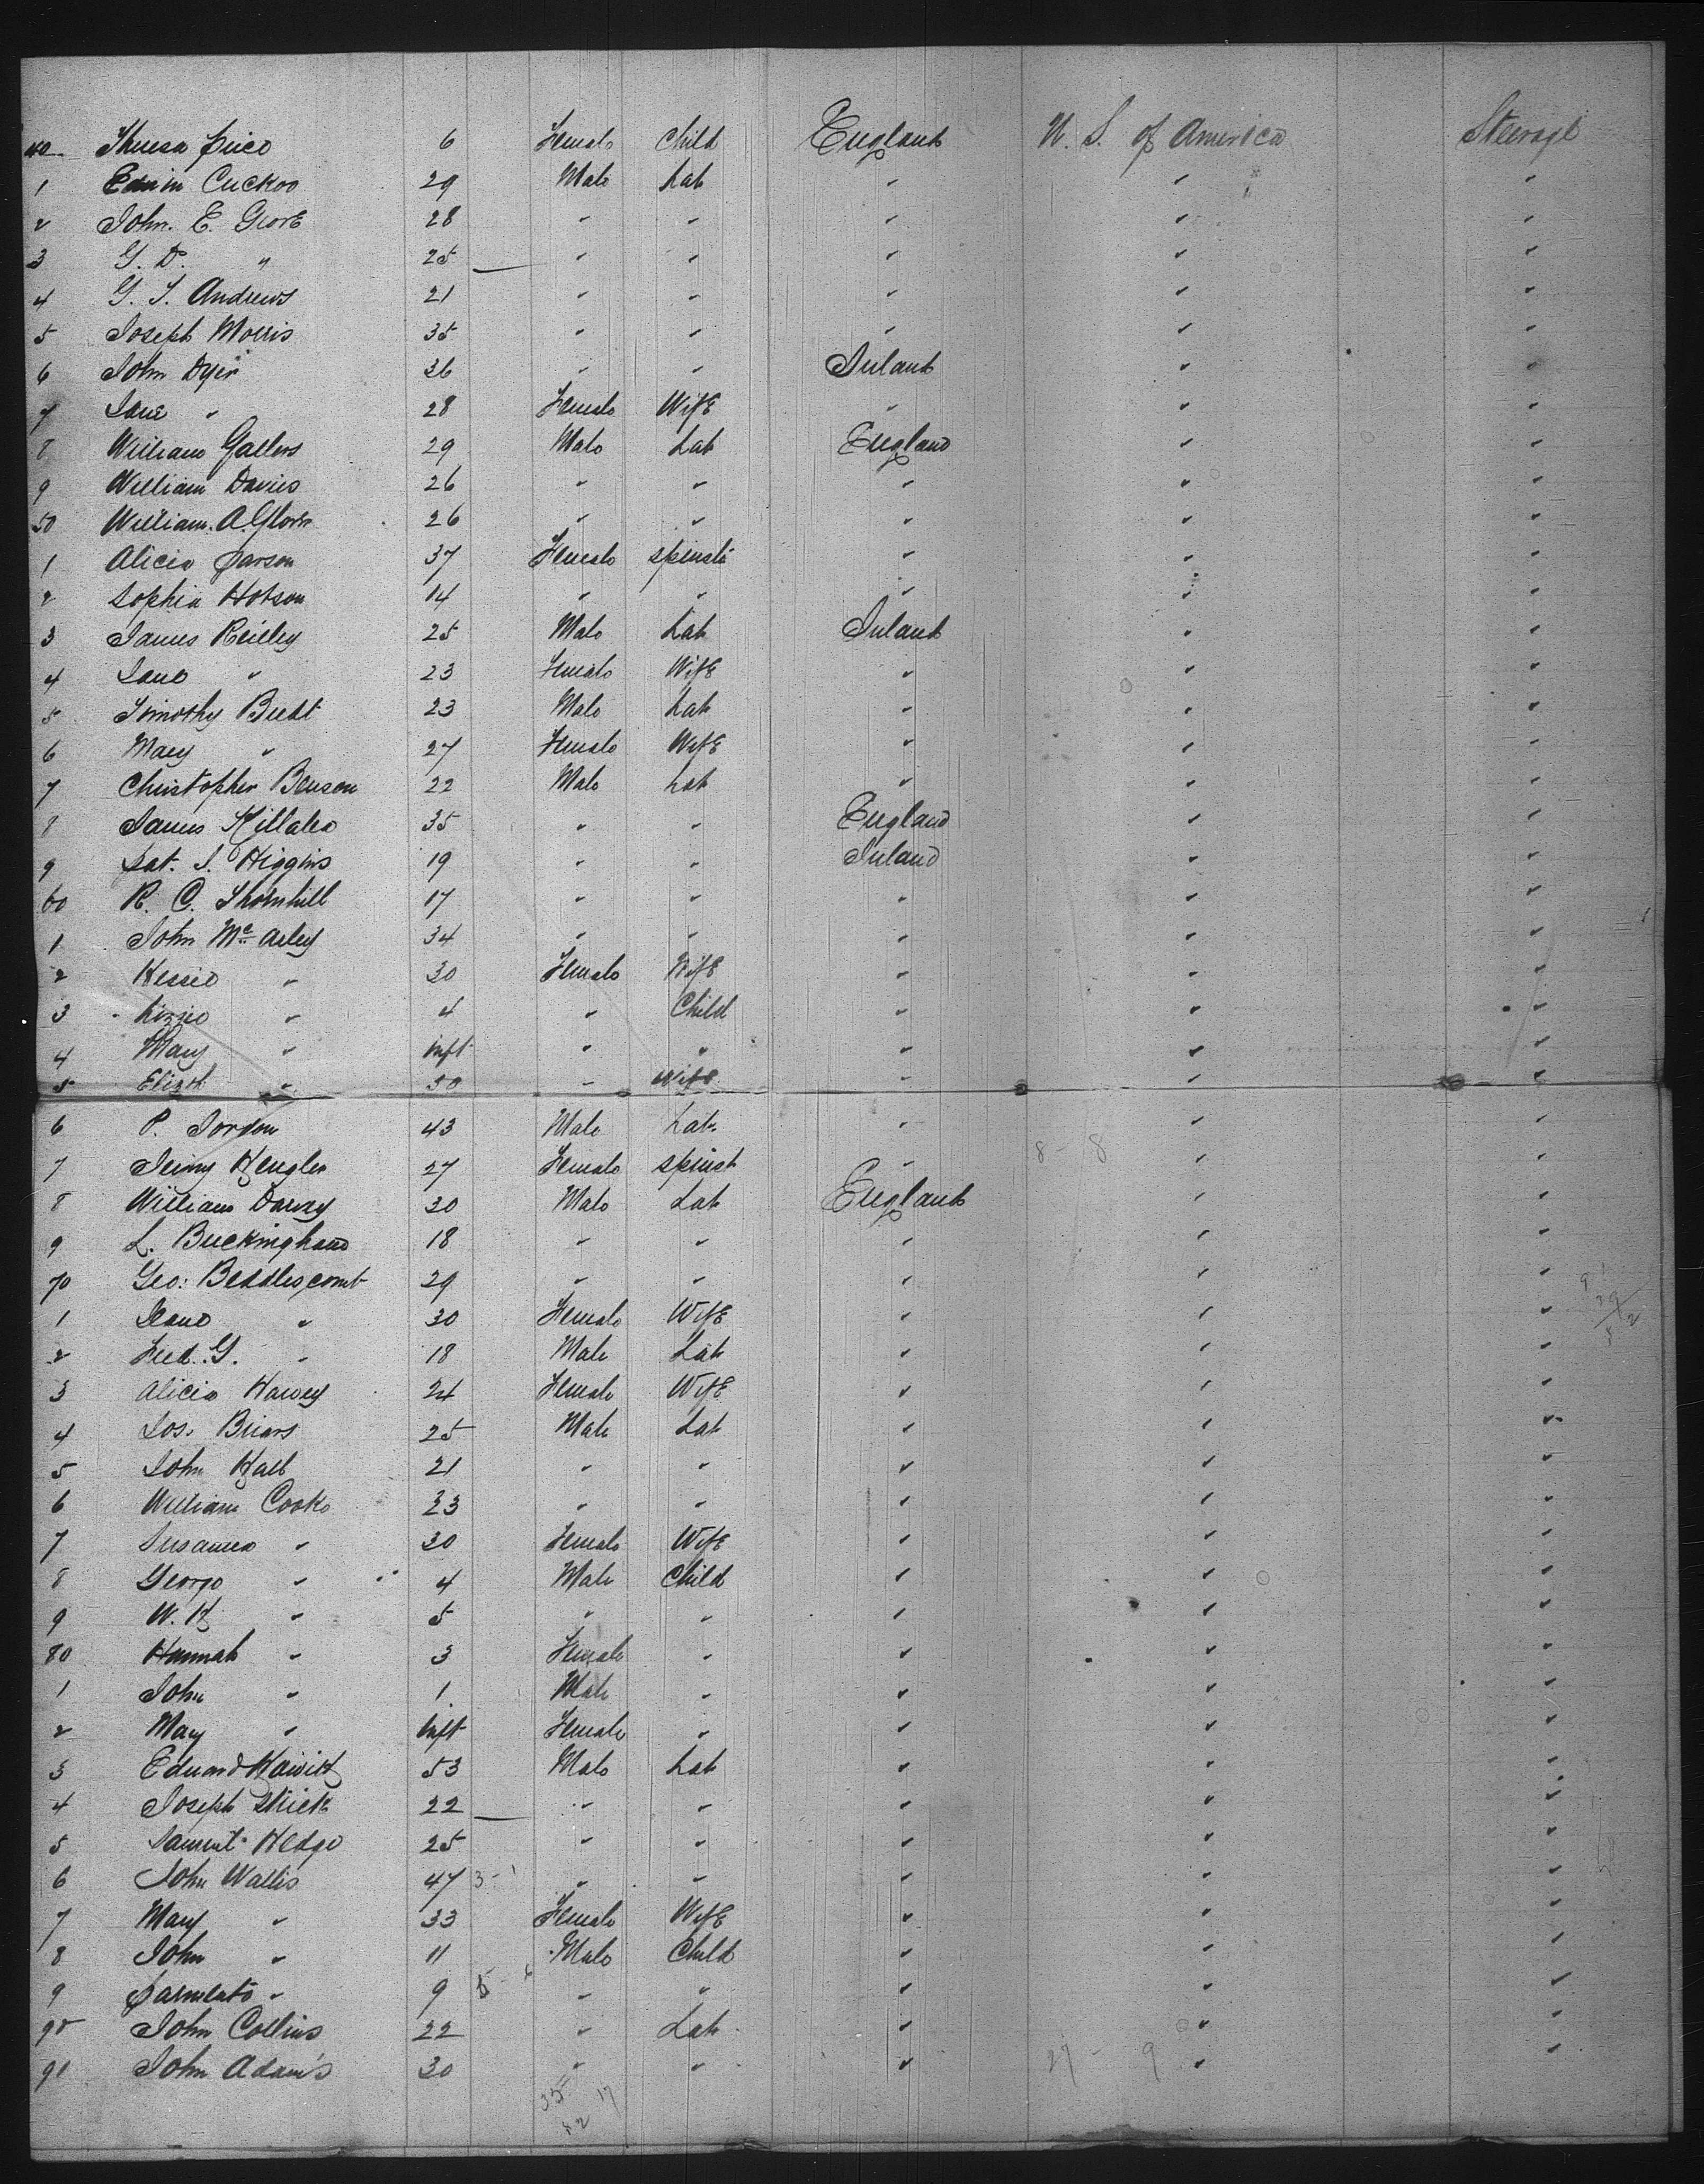 40 Theresa Price 6 Female Child England U. S. of America Steerage
1 Edwin Cuckoo 29 Male Lab " " "
2 John. E. 28 " " " " "
3 G. D. " 25 " " " " "
4 G. S. Andrews 21 " " " " "
5 Joseph Morris 35 " " " " "
6 John Dyer 36 " " Ireland " "
7 Jane " 28 Female Wife " " "
8 William Gallers 29 Male Lab England " "
9 William Davies 26 " " " " "
50 William. A. Glover 26 " " " " "
1 Alicia Parson 37 Female spinstr " " "
2 Sophia Hobson 14 " " " " "
3 James Reilley 25 Male Lab Ireland " "
4 Jane " 23 Female Wife " " "
5 Timothy 23 Male Lab " " "
6 Mary " 27 Female Wife " " "
7 Christopher Benson 22 Male Lab " " "
8 James Killalea 35 " " England " "
9 Pat. J. Higgins 19 " " Ireland " "
60 R. C. Thornhill 17 " " " " "
1 John Mc Arley 34 " " " " "
2 Hessie " 30 Female Wife " " "
3 Lizzie " 4 " Child " " "
4 Mary " Inft " " " " "
5 Elizth " 30 " Wife " " "
6 P. Jordon 43 Male Lab. " " "
7 Jenny Hengler 27 Female spinst " 8 - 8 " "
8 William Darvey 30 Male Lab England " "
9 L. Buckingham 18 " " " " "
70 Geo: Beddlescomb 29 " " " " "
1 Jane " 30 Female Wife " " "
2 Fred. G. " 18 Male Lab " " "
3 Alicia Harvey 24 Female Wife " " "
4 Jos. Briars 25 Male Lab " " "
5 John Hall 21 " " " " "
6 William Cooke 23 " " " " "
7 Susanna " 30 Female Wife " " "
8 George " 4 Male Child " " "
9 W. H " 5 " " " " "
80 Hannah " 3 Female " " " "
1 John " 1 Male " " " "
2 Mary " Inft Female " " " "
3 Edward 53 Male Lab " " "
4 Joseph 22 " " " " "
5 Samuel Hedge 25 " " " " "
6 John Wallis 47 3 - 1 " " " " "
7 Mary " 33 Female Wife " " "
8 John " 11 Male Child " " "
9 " 9 " " " " "
90 John Collins 22 " Lab " " "
91 John Adams 30 " " " 27 - 9 " "
35 17